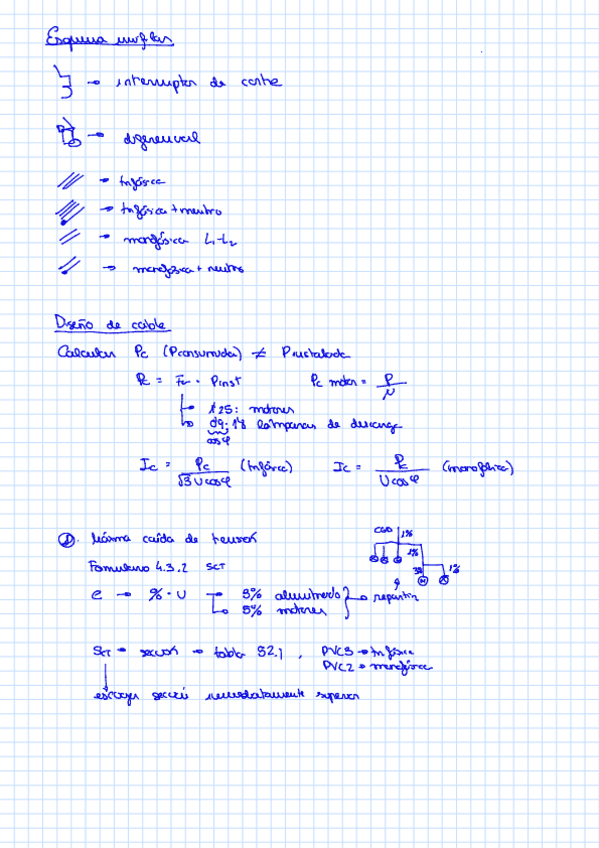 Esquema unifilar
→ interruptor de corte
→ diferencial
→ trifásica
→ trifásica + neutro
→ monofásica L1-L2
→ monofásica + neutro
Diseño de cable
Calcular Pc (Pconsumida) ≠ Pinstalada
Pc = Fu · Pinst Pc motor = P/μ
1'25: motores
0'9·1'8 lámparas de descarga
cosφ
Ic = Pc/√3 U cosφ (trifásica) Ic = Pc/U cosφ (monofásica)
①. Máxima caída de tensión
Formulario 4.3.2 SCT
e → % · U → 3% alumbrado
→ 5% motores → repartir
1%
1%
3%
1%
SCT → sección → tabla 52.1, PVC3 → trifásica
PVC2 → monofásica
escoger secció inmediatamente superior